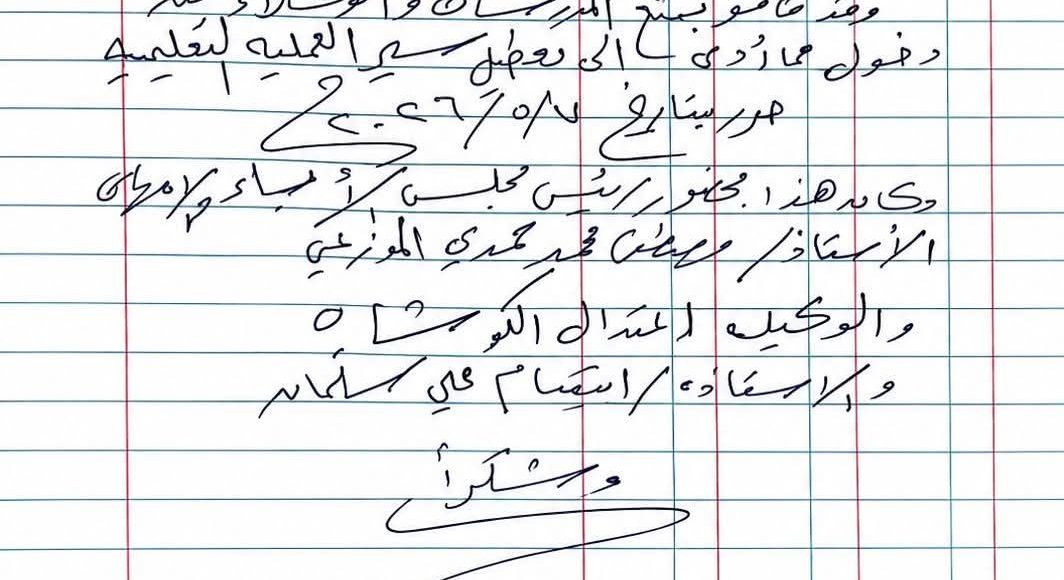 وقد قامو بمنع المدرسات
دخول مما أدى إلى تعطيل سير العملية التعليمية
حرر بتاريخ ٢٠٢٦/٥/٧
وكان هذا بحضور رئيس مجلس الأباء والامهات
الأستاذ/ مصطفى محمد حمدي الموزعي
والوكيله اعتدال الكوشاه
والاستاذه/ ابتسام علي سلمان
وشكراً